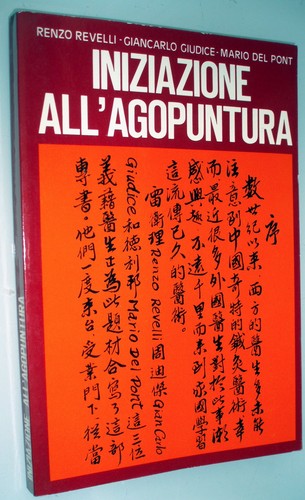 RENZO REVELLI - GIANCARLO GIUDICE - MARIO DEL PONT
INIZIAZIONE
ALL'AGOPUNTURA
序
數世紀以来,西方的醫生多未能
注意到中國奇特的鍼灸醫術,幸
而最近很多外國醫生對於此事漸
感興趣,不遠千里而来到我國學習
這流傳已久的醫術。
雷衛理Renzo Revelli周迪傑Gian Carlo
Giudice和德利邦Mario Del Pont這三位
義籍醫生正為此題材合寫了這部
專書。他們一度来台受業門下,從當
INIZIAZIONE ALL'AGOPUNTURA